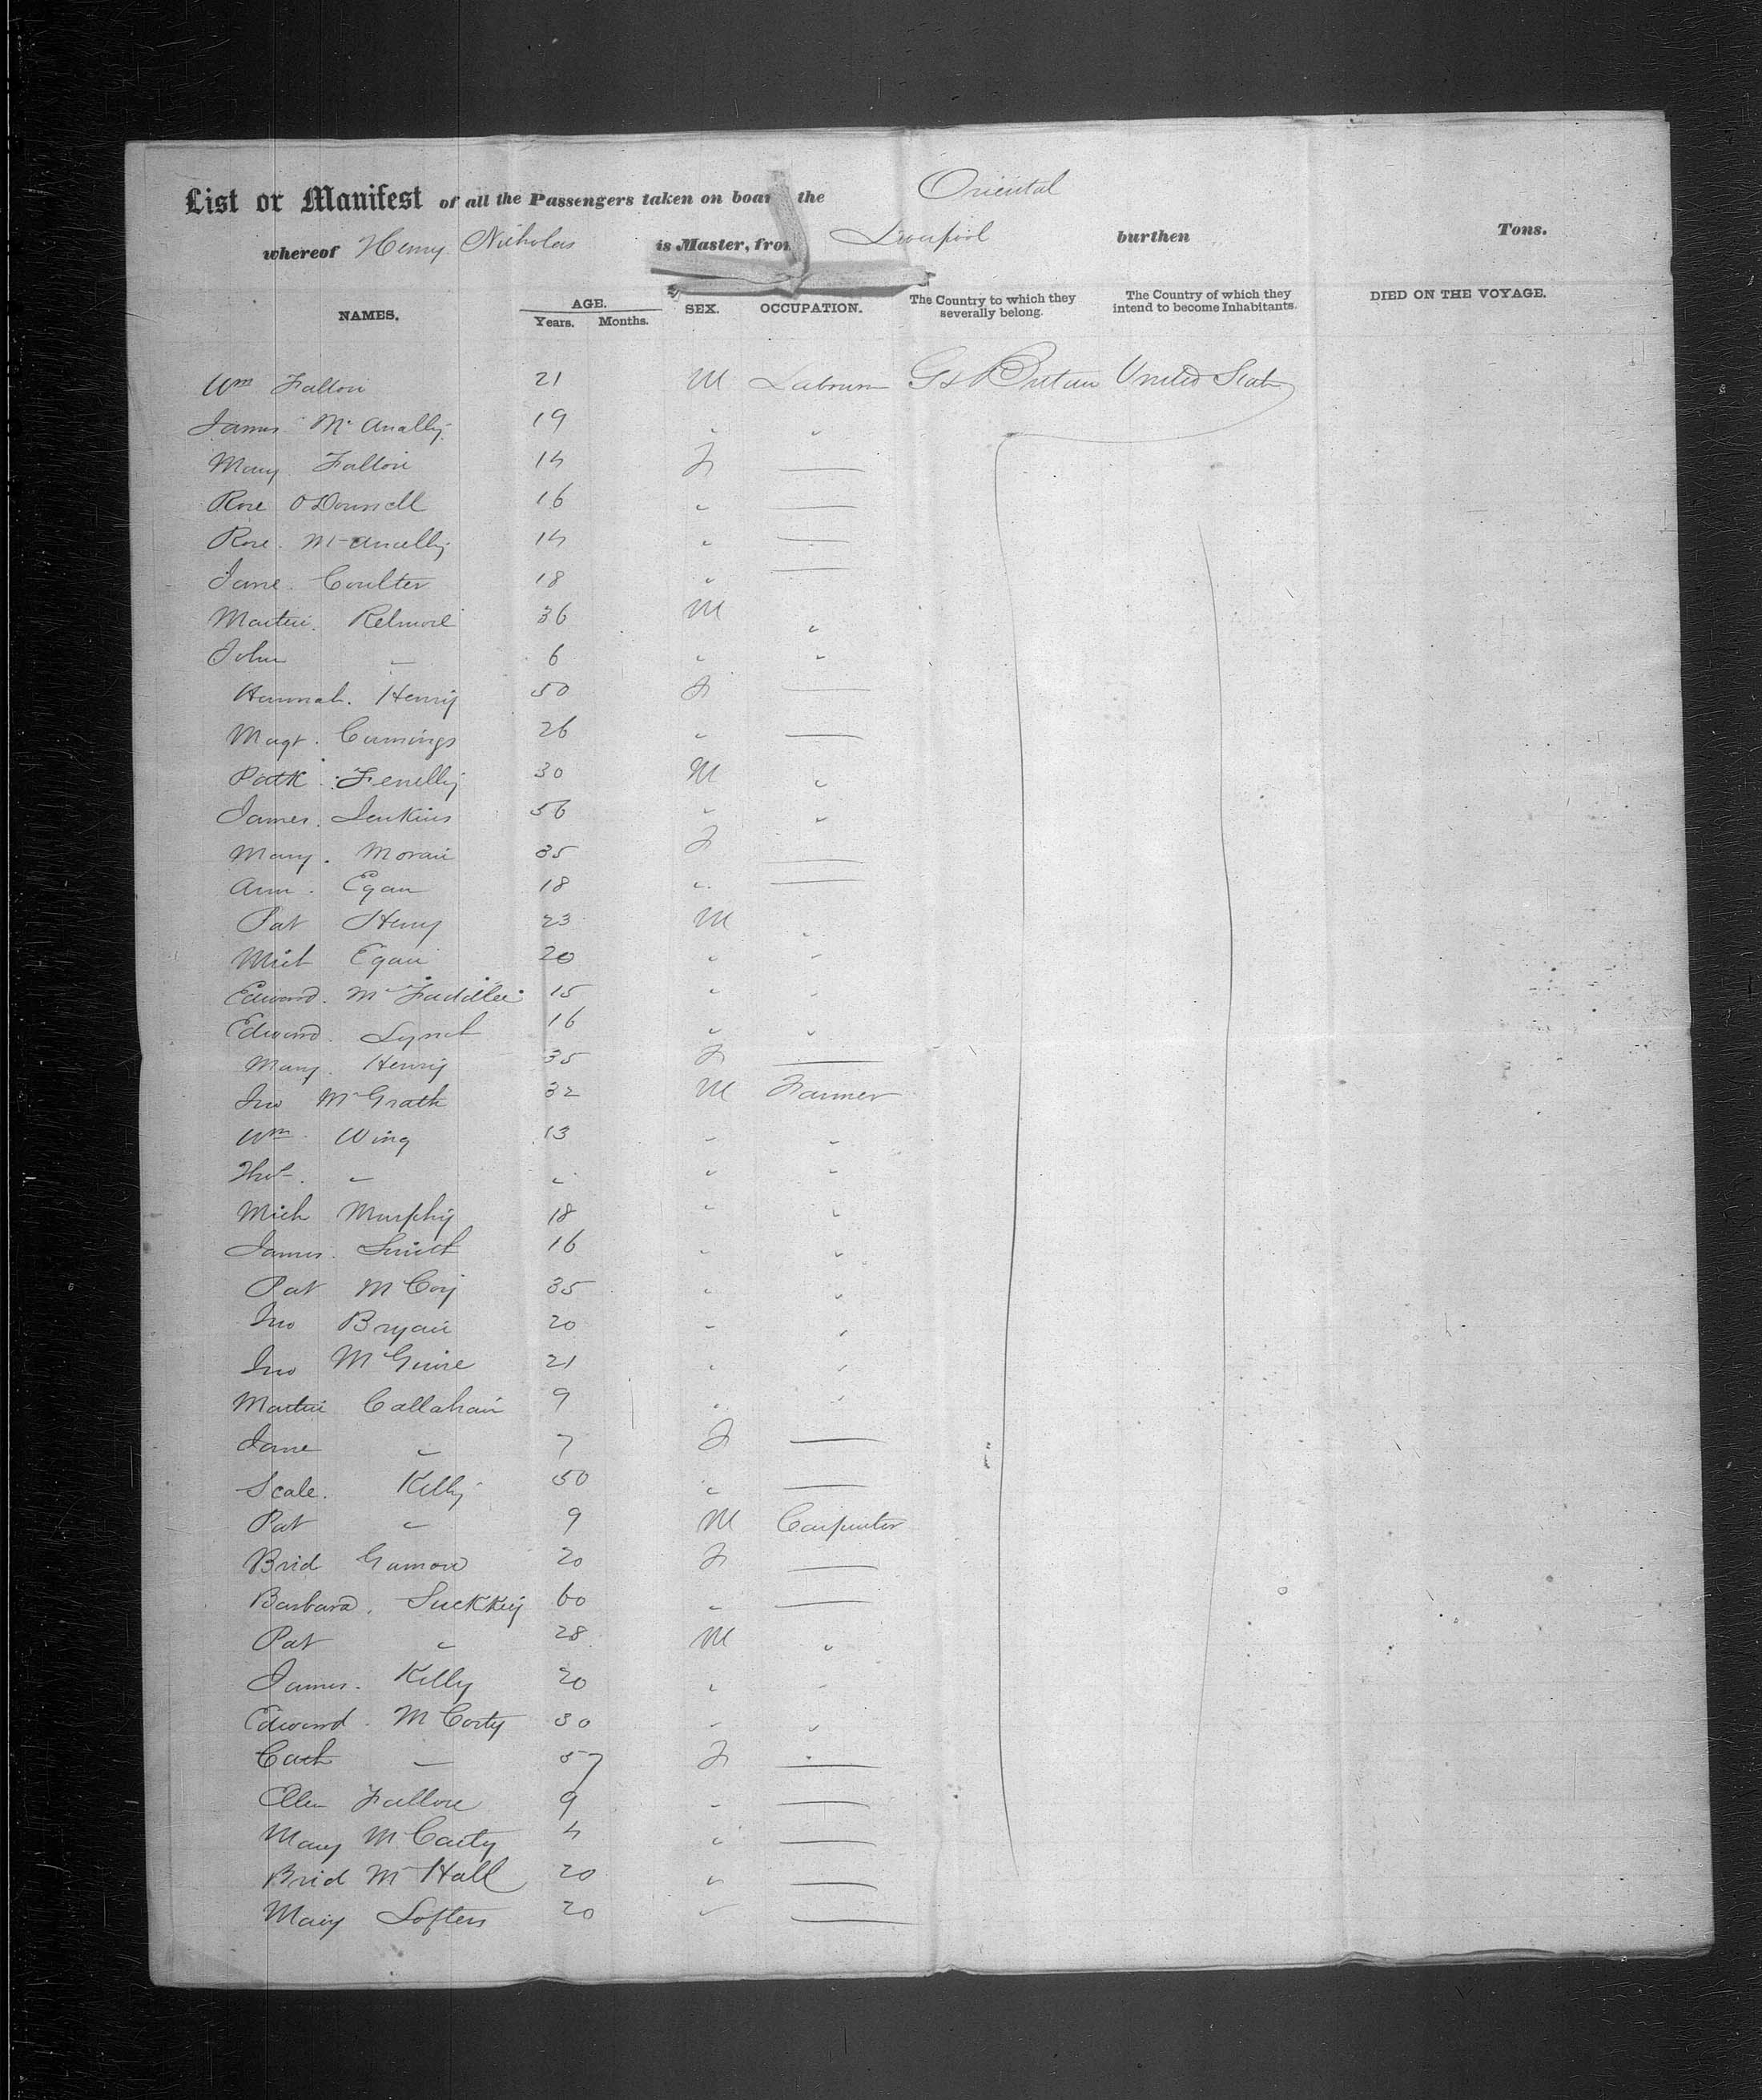 List or Manifest of all the Passengers taken on board the Oriental
whereof Henry Nicholas is Master, from Liverpool burthen Tons.
NAMES. AGE. Years. Months. SEX. OCCUPATION. The Country to which they severally belong. The Country of which they intend to become Inhabitants. DIED ON THE VOYAGE.
Wm Fallon 21 M Labourer Gt Britain United States
James McAnally 19 " "
Mary Fallon 14 F —
Rose O'Donnell 16 " —
Rose McAnally 14 " —
Jane Coulter 18 " —
Martin 36 M "
John " 6 " "
Hannah Henry 50 F —
Magt Cumings 26 " —
Patk Fenelly 30 M "
James Jenkins 56 " "
Mary Moran 35 F —
Ann Egan 18 " —
Pat Henry 23 M "
Mich Egan 20 " "
Edward 15 " "
Edward Lynch 16 " "
Mary Henry 35 F —
Jno McGrath 32 M Farmer
Wm Wing 13 " "
Thos " " " "
Mich Murphy 18 " "
James Smith 16 " "
Pat McCoy 35 " "
Jno Bryan 20 " "
Jno McGuire 21 " "
Martin Callahan 9 " "
Jane " 7 F —
Kelly 50 " —
Pat " 9 M Carpenter
Brid 20 F —
Barbara 60 " —
Pat " 28 M "
James Kelly 20 " "
Edward McCarty 30 " "
Cath — 57 F —
Ellen Fallon 9 " —
Mary McCarty 4 " —
Brid McHall 20 " —
Mary Loftus 20 " —